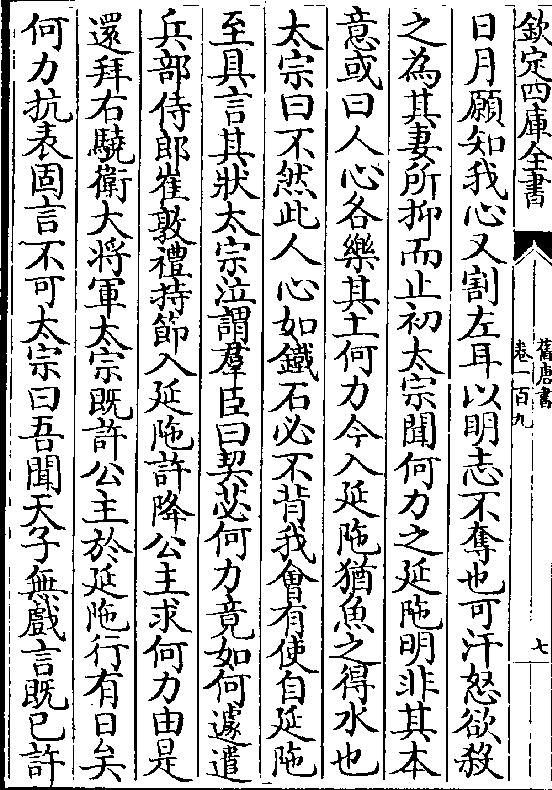 欽定四庫全書
舊唐書
卷一百九
七
日月願知我心又割左耳以明志不奪也可汗怒欲殺
之為其妻所抑而止初太宗聞何力之延陁明非其本
意或曰人心各樂其土何力今入延陁猶魚之得水也
太宗曰不然此人心如鐵石必不背我會有使自延陁
至具言其狀太宗泣謂羣臣曰契苾何力竟如何遽遣
兵部侍郎崔敦禮持節入延陁許降公主求何力由是
還拜右驍衛大將軍太宗既許公主於延陁行有日矣
何力抗表固言不可太宗曰吾聞天子無戲言既已許